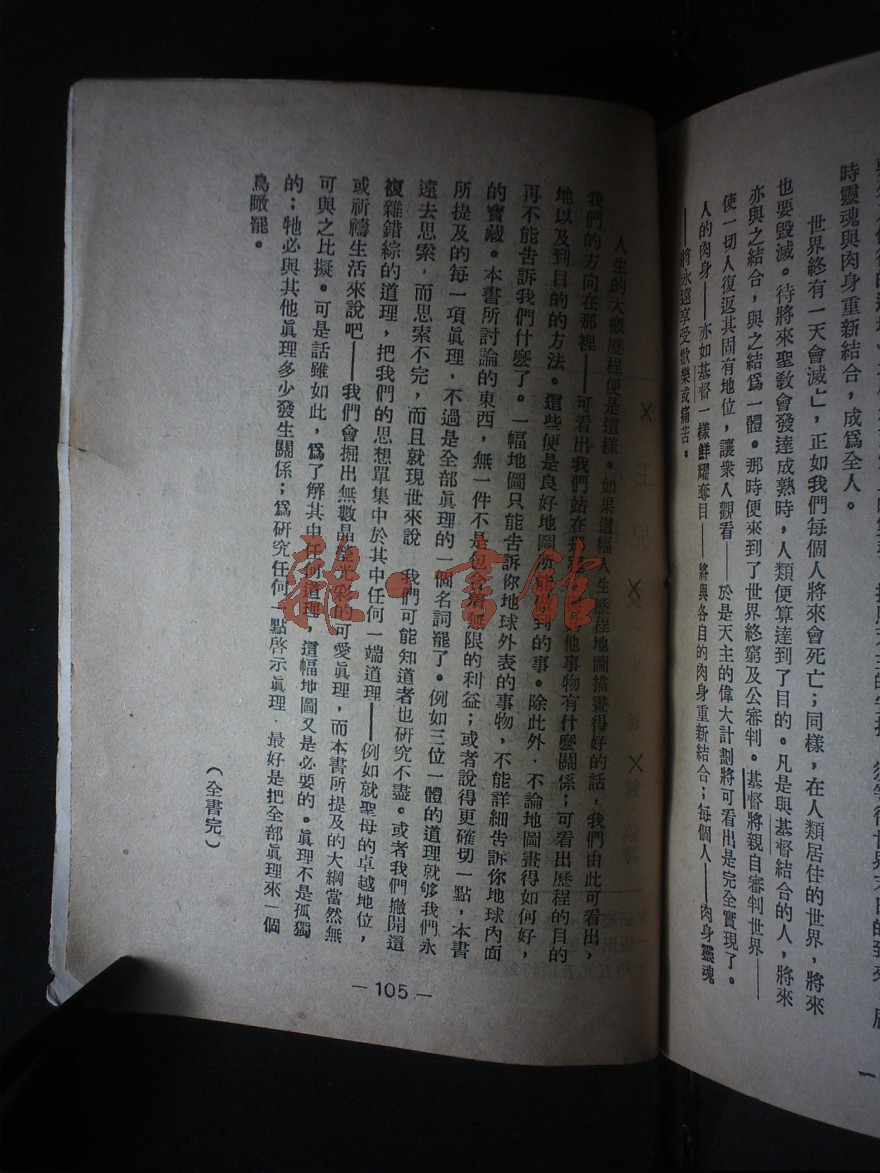 時靈魂與肉身重新結合，成爲全人。
世界終有一天會滅亡，正如我們每個人將來會死亡；同樣，在人類居住的世界，將來
也要毀滅。待將來聖教會發達成熟時，人類便算達到了目的。凡是與基督結合的人，將來
亦與之結合，與之結爲一體。那時便來到了世界終窮及公審判。基督將親自審判世界——
使一切人復返其固有地位，讓衆人觀看——於是天主的偉大計劃將可看出是完全實現了。
人的肉身——亦如基督一樣鮮耀奪目——將與各自的肉身重新結合；每個人——肉身靈魂
——將永遠享受歡樂或痛苦。
人生的大概歷程便是這樣。如果這幅人生歷程地圖描畫得好的話，我們由此可看出，
我們的方向在那裡——可看出我們站在 他事物有什麼關係；可看出歷程的目的
地以及到目的的方法。這些便是良好地圖所 到的事。除此外，不論地圖畫得如何好，
再不能告訴我們什麼了。一幅地圖只能告訴你地球外表的事物，不能詳細告訴你地球內面
的寶藏。本書所討論的東西，無一件不是包含着無限的利益；或者說得更確切一點，本書
所提及的每一項眞理，不過是全部眞理的一個名詞罷了。例如三位一體的道理就够我們永
遠去思索，而思索不完，而且就現世來說 我們可能知道者也研究不盡。或者我們撇開這
複雜錯綜的道理，把我們的思想單集中於其中任何一端道理——例如就聖母的卓越地位，
或祈禱生活來說吧——我們會掘出無數晶瑩光彩的可愛眞理，而本書所提及的大綱當然無
可與之比擬。可是話雖如此，爲了解其中任何道理，這幅地圖又是必要的。眞理不是孤獨
的；牠必與其他眞理多少發生關係；爲研究任何一點啓示眞理，最好是把全部眞理來一個
鳥瞰罷。
（全書完）
— 105 —
雜·書館